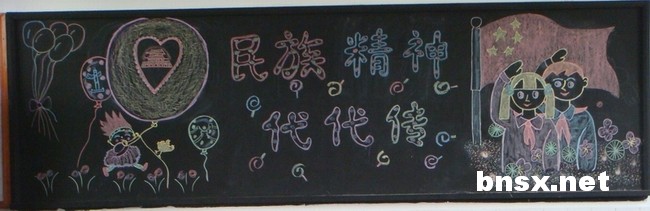 民族精神
代代传
bnsx.net